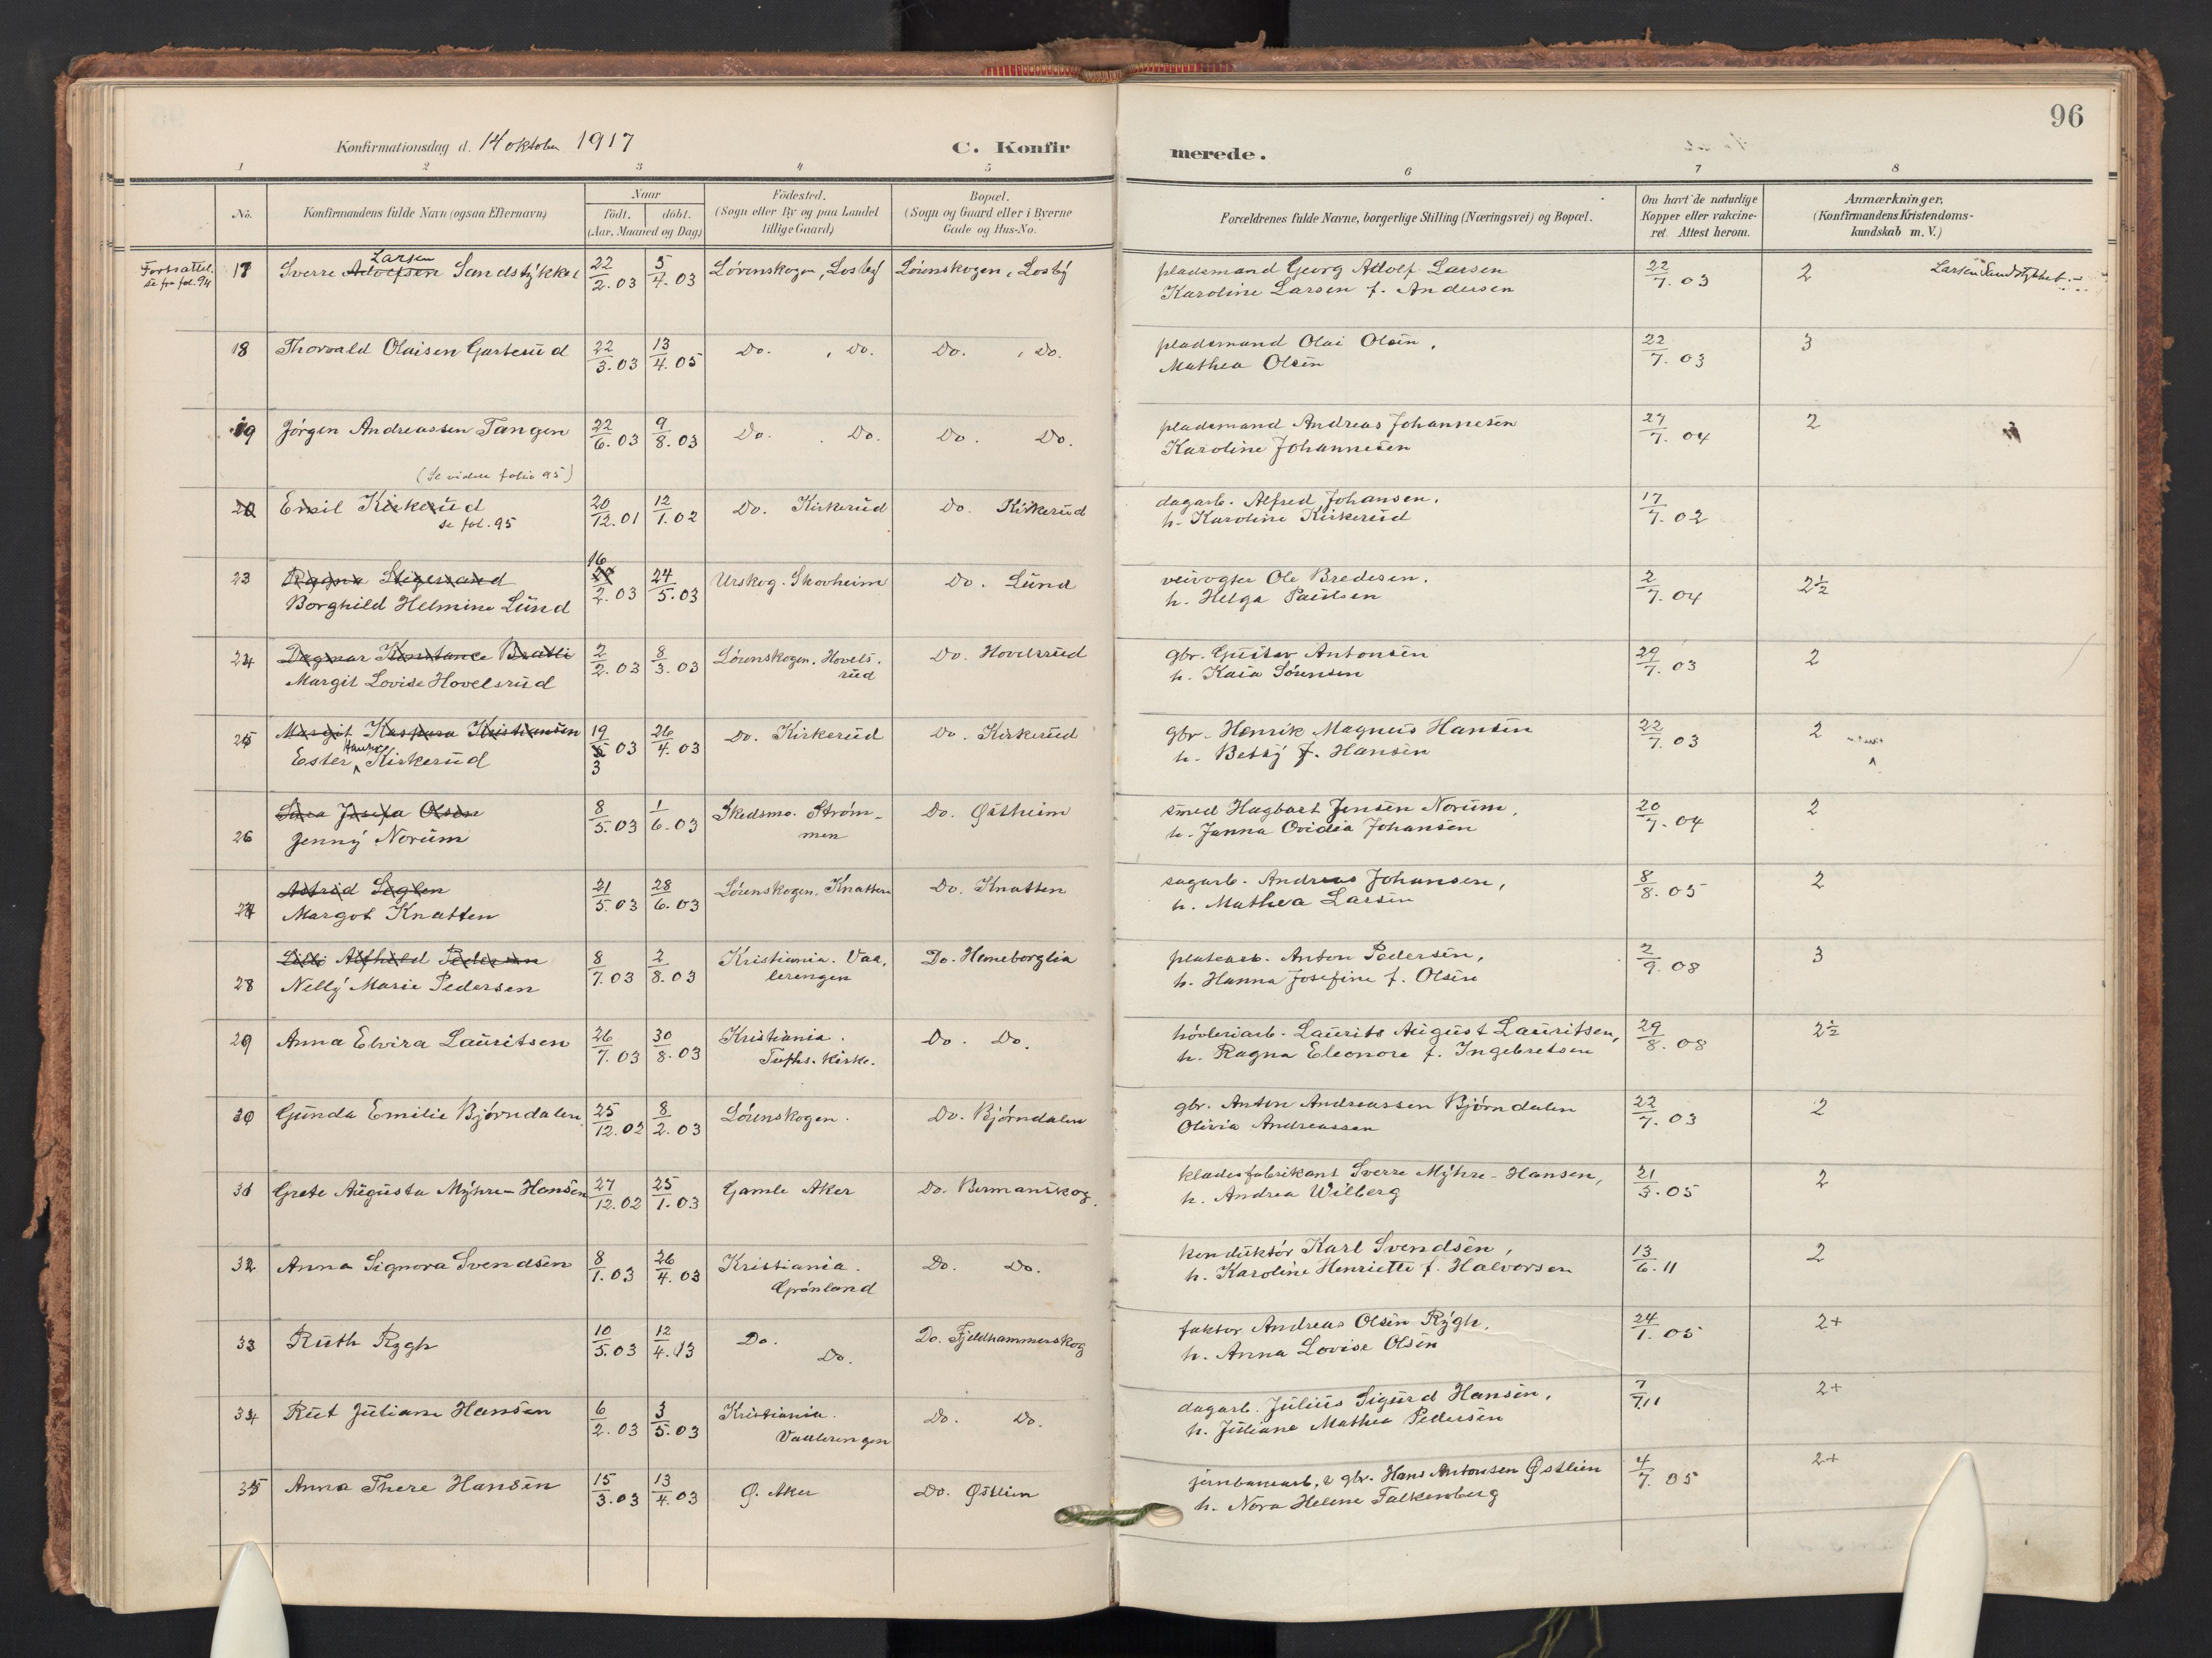 96
Konfirmationsdag d. 14 oktober 1917
C. Konfirmerede.
1 2 3 4 5 6 7 8
No.
Konfirmandens fulde Navn (ogsaa Efternavn)
Naar
født. døbt.
(Aar, Maaned og Dag)
Fødested.
(Sogn eller By og paa Landet
tillige Gaard)
Bopæl.
(Sogn og Gaard eller i Byerne
Gade og Hus-No.
Forældrenes fulde Navne, borgerlige Stilling (Næringsvei) og Bopæl.
Om havt de naturlige
Kopper eller vakcine-
ret. Attest herom.
Anmærkninger,
(Konfirmandens Kristendoms-
kundskab m. V.)
Fortsættel.
se fra fol. 94
17 Sverre Adolfsen Larsen Sandstykket 22/2.03 5/4.03 Lørenskogen, Losby Lørenskogen, Losby pladsmand Georg Adolf Larsen 22/7.03 2 Larsen Sandstykket.-
Karoline Larsen f. Andersen
18 Thorvald Olaisen Garterud 22/3.03 13/4.05 Do. , Do. Do. , Do. pladsmand Olai Olsen, 22/7.03 3
Mathea Olsen
19 Jørgen Andreassen Tangen 22/6.03 9/8.03 Do. . Do. Do. Do. pladsmand Andreas Johannesen 27/7.04 2
Karoline Johannesen
(Se videre folio 95)
20 Emil Kirkerud 20/12.01 12/1.02 Do. Kirkerud Do. Kirkerud dagarb. Alfred Johansen. 17/7.02
se fol. 95 h. Karoline Kirkerud
23 Ragna Stigersand 16/2.03 24/5.03 Urskog. Skovheim Do. Lund veivogter Ole Bredesen. 2/7.04 2½
Borghild Helmine Lund h. Helga Paulsen
24 Dagmar Konstance Bratli 2/2.03 8/3.03 Lørenskogen. Hovels. Do. Hovelsrud gbr. Gustav Antonsen 29/7.03 2
Margit Lovise Hovelsrud rud h. Kaia Sørensen
25 Margit Kaspara Kristiansen 19/3 03 26/4.03 Do. Kirkerud Do. Kirkerud gbr. Henrik Magnus Hansen 22/7.03 2
Ester Kirkerud h. Betsy f. Hansen
26 Josefa Olsen 8/5.03 1/6.03 Skedsmo. Strøm- Do. Østheim smed Hagbart Jensen Norum, 20/7.04 2
Jenny Norum men h. Janna Ovidia Johansen
27 Astrid Seglen 21/5.03 28/6.03 Lørenskogen. Knatten Do. Knatten sagarb. Andreas Johansen, 8/8.05 2
Margot Knatten h. Mathea Larsen
28 Alfhild Pedersen 8/7.03 2/8.03 Kristiania. Vaa- Do. Haneborglia platearb. Anton Pedersen, 2/9.08 3
Nelly Marie Pedersen lerengen h. Hanna Josefine f. Olsen
29 Anna Elvira Lauritsen 26/7.03 30/8.03 Kristiania. Do. Do. høvleriarb. Laurits August Lauritsen, 29/8.08 2½
Tøfths. Kirke. h. Ragna Eleonore f. Ingebretsen
30 Gunda Emilie Bjørndalen 25/12.02 8/2.03 Lørenskogen. Do. Bjørndalen gbr. Anton Andreassen Bjørndalen 22/7.03 2
Olivia Andreassen
31 Grete Augusta Myhre-Hansen 27/12.02 25/1.03 Gamle Aker Do. Bermanskog. kladesfabrikant Sverre Myhre-Hansen, 21/3.05 2
h. Andrea Wilberg
32 Anna Signora Svendsen 8/1.03 26/4.03 Kristiania. Do. Do. konduktør Karl Svendsen, 13/6.11 2
Grønland h. Karoline Henriette f. Halvorsen
33 Ruth Rygh 10/5.03 12/4.13 Do. Do. Do. Fjeldhammerskog faktor Andreas Olsen Rygh. 24/1.05 2+
h. Anna Lovise Olsen
34 Rut Juliane Hansen 6/2.03 3/5.03 Kristiania. Do. Do. dagarb. Julius Sigurd Hansen, 7/7.11 2+
Vaalerengen h. Juliane Mathea Pedersen
35 Anna There Hansen 15/3.03 13/4.03 Ø. Aker Do. Østlien jernbanearb. & gbr. Hans Antonsen Østlien 4/7.05 2+
h. Nora Helene Falkenberg